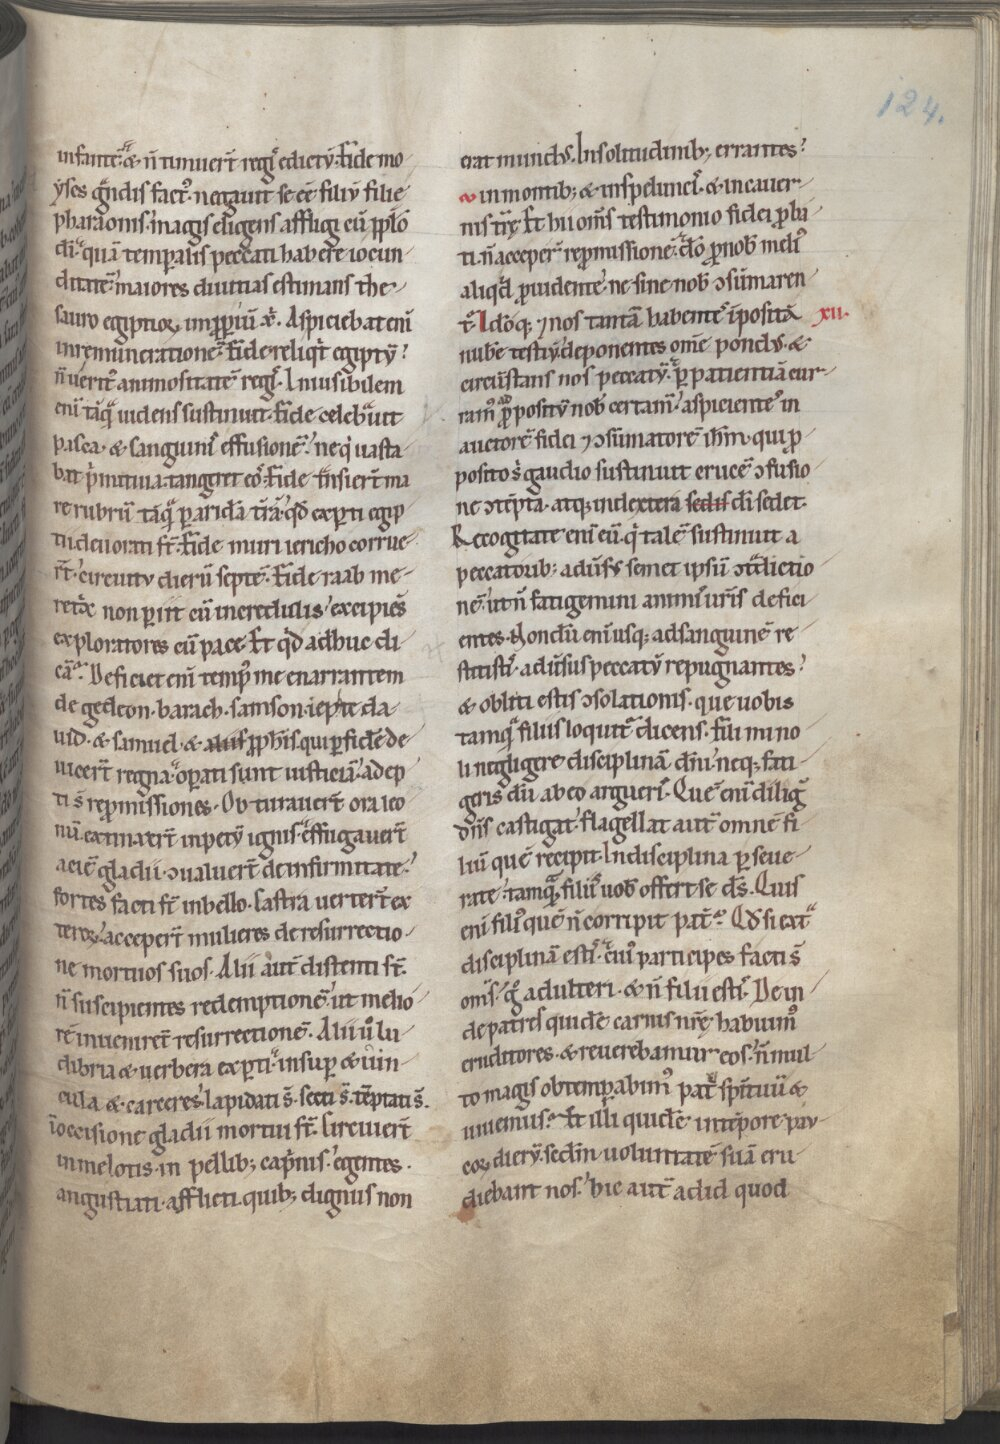 124.
infantē. & ñ timuer̄t regꝭ edictū. Fide mo
yses g̃ndis fact᷒. negauit se eē filiū filie
pharaonis. magis eligens affligi cū ppl̄o
dī. quā temꝑalis peccati habere iocun
ditatē. maiores diuitias estimans the
sauro egiptioꝝ. inpꝓpiū xp̄ı. Aspiciebat enī
inremuneratione. Fide reliqͥt egiptū.
ñ uerit᷒ animositatē regꝭ. Inuisibilem
enī tāqͣ uidens sustinuit. Fide celebͣuit
pasca. & sanguinꝭ effusionē. neqͥ uasta
bat pͥmitiua. tangeret eos. Fide tn̄sier̄t ma
re rubrū tāqͣ ꝑ aridā tr̄ā. qd̄ experti egip
tii deuorati st̄. Fide muri iericho corrue
r̄t. circuitu dierū septē. Fide raab me
retͥx non ꝑiit cū incredulis. excipiēs
exploratores cū pace. Et qͥd adhuc di
cā. Deficiet enī temp᷒ me enarrantem
de gedeon. barach. samson. iepte. da
uid. & samuel. & aliis ꝓphīs. qui ꝑ fidē de
uicer̄t regna. oꝑati sunt iusticiā. adep
ti s̄ repromissiones. Obturauer̄t ora leo
nū. extinxer̄t inpetū ignis. effugauer̄t
aciē gladii. ɔualuer̄t de infirmitate.
fortes facti st̄ in bello. Castra uerter̄t ex
teroꝝ. acceper̄t mulieres de resurrectio
ne mortuos suos. Alii aut̄ distenti st̄.
ñ suscipientes redemptionē. ut melio
rē inuenirēt resurrectionē. Alii u̾ lu
dibria & uerbera experti. insuꝑ & uin
cula & carceres. lapidati s̄. secti s̄. tēptati s̄.
ı̄ occisione gladii mortui st̄. Circuier̄t
in melotis. in pellib; capͥnis. egentes.
angustiati. afflicti. quib; dignus non
erat mund᷒. In solitudinib; errantes.
in montib; & in speluncꝭ. & in cauer
nis tr̄ę. Et hii om̄s testimonio fidei ꝓba
ti. ñ acceper̄ repromissionē. dō ꝓ nob̄ meli᷒
aliqͥd ꝓuidente. ne sine nob̄ ɔsūmaren
t̄. Idōq; ⁊ nos tantā habentes īpositā xii.
nubē testiū. deponentes om̄e pond᷒. &
circūstans nos peccatū. ꝑ patientiā cur
ram᷒ ꝓpositū nob̄ certam̄. aspicientes in
auctorē fidei ⁊ ɔsūmatorē ih̄m. qui ꝓ
posito s̄ gaudio sustinuit crucē ɔfusio
ne ɔtēpta. atq; in dextera sedis dī sedet.
Recogitate enī eū. qͥ talē sustinuit a
peccatorib; adūs᷒ semet ipsū ɔtͣdictio
nē. ut ñ fatigemini animꝭ ur̄is defici
entes. Nondū enī usq; ad sanguinē re
stitistꝭ. adūsus peccatū repugnantes.
& obliti estis ɔsolationis. que uobis
tamqͣ filiis loquit̄ dicens. Fili mi no
li negligere disciplinā dn̄i. neq; fati
geris dū ab eo argueris. Quē enī diligͥ
dn̄s castigat. flagellat aut̄ omnē fi
liū quē recipit. In disciplina ꝑseue
rate. tamqͣ filiis uob̄ offert se ds̄. Quis
enī fili᷒ quē ñ corripit pat̄. Qd̄ si extͣ
disciplinā estꝭ. cui᷒ participes facti s̄
om̄s. g̊ adulteri. & ñ filii estꝭ. De in
de patres quidē carnis nr̄ę habuim᷒
eruditores. & reuerebamur eos. ñ mul
to magis obtemꝑabim᷒ patͥ spirituū &
uiuemus. Et illi quidē in tēpore pau
coꝝ dierū. scd̄m uoluntatē suā eru
diebant nos. hic aut̄ ad id quod